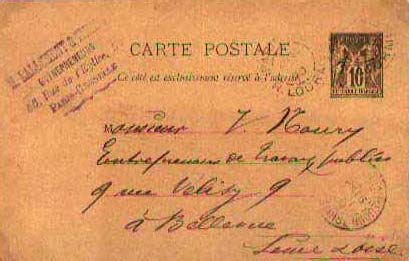 ENTREPRENEURS
Rue de l'Eglise
CARTE POSTALE
Ce côté est exclusivement réservé à l'adresse.
R. LOUR
10
Monsieur V. Noury
Entrepreneur de travaux publics
9 rue Vélizy 9
à Bellevue
Seine & Oise